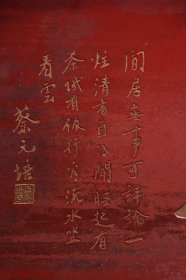 閒居無事可評論一
炷清香自得聞睡起有
茶飢有飯行看流水坐
看雲
蔡元培